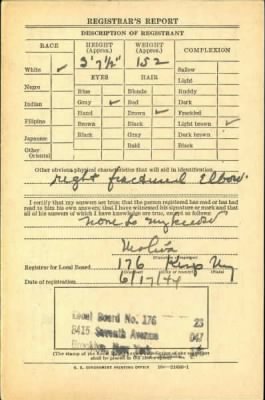 REGISTRAR'S REPORT
DESCRIPTION OF REGISTRANT
RACE HEIGHT (Approx.) WEIGHT (Approx.) COMPLEXION
5' 7½" 152
White ✓ Sallow
EYES HAIR Light
Negro Blue Blonde Ruddy
Indian Gray ✓ Red Dark
Hazel Brown ✓ Freckled
Filipino Brown Black Light brown ✓
Japanese Black Gray Dark brown
Other Oriental Bald Black
Other obvious physical characteristics that will aid in identification
right fractured Elbow.
I certify that my answers are true; that the person registered has read or has had
read to him his own answers; that I have witnessed his signature or mark and that
all of his answers of which I have knowledge are true, except as follows:
none to my
(Signature of registrar)
Registrar for Local Board 176 Kings NY
(Number) (City or county) (State)
Date of registration 6/17/44
Local Board No. 176 23
8415 Seventh Avenue 047
Brooklyn, New York
(The stamp of the Local Board
shall be placed in the above space.)
U. S. GOVERNMENT PRINTING OFFICE